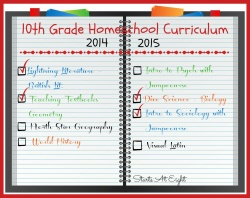 10th Grade Homeschool Curriculum
2014 2015
Lightning Literature
British Lit
Teaching Textbooks
Geometry
North Star Geography
World History
Intro to Psych with
Jumpcourse
Dive Science - Biology
Intro to Sociology with
Jumpcourse
Visual Latin
Starts At Eight